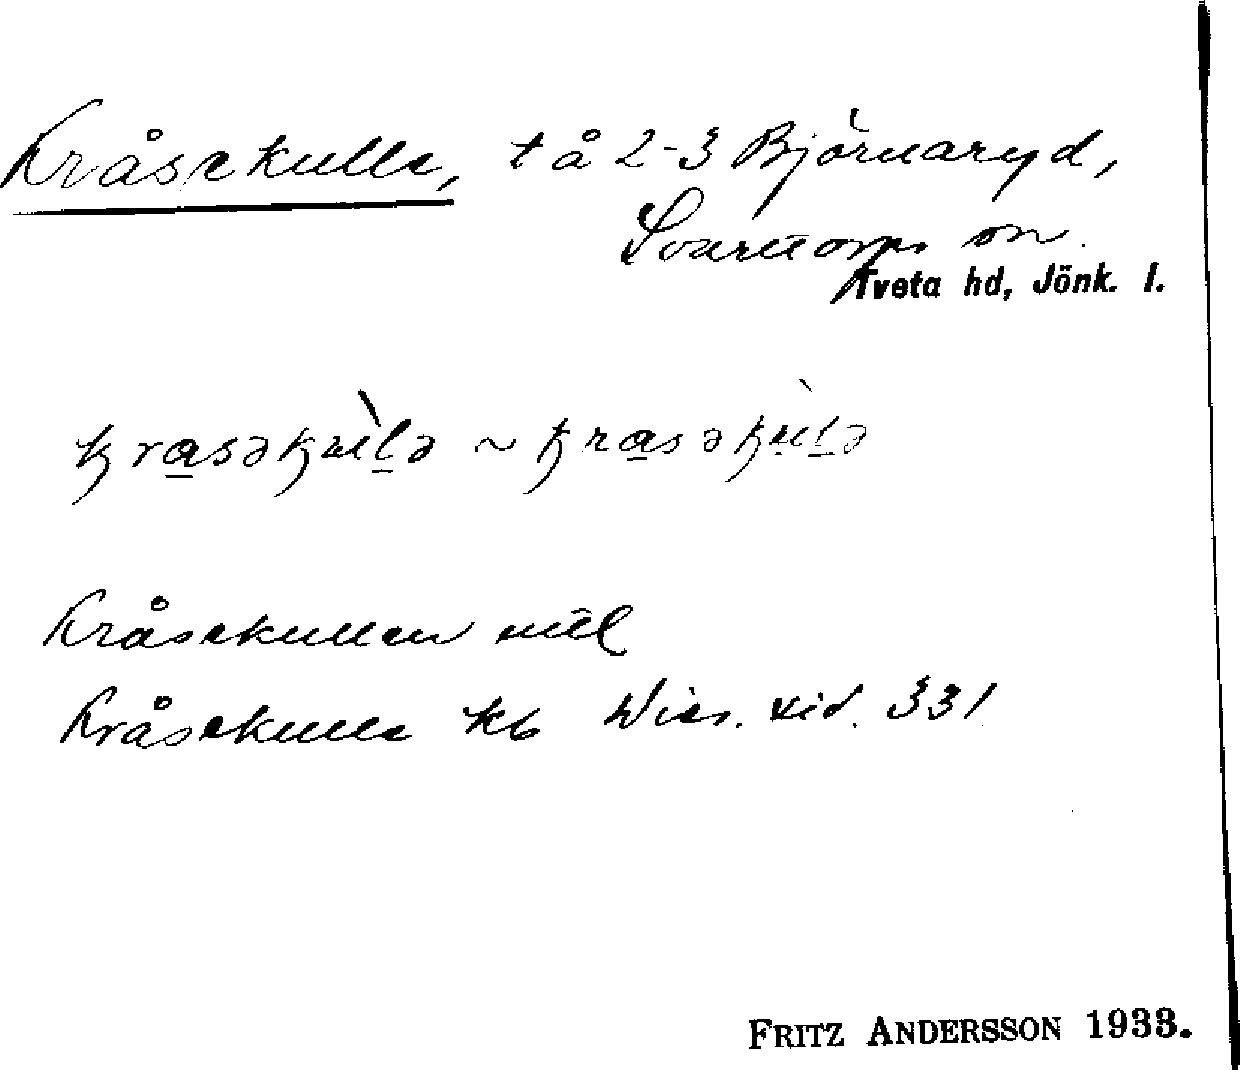 Kråsekulle, t å 2-3 Björnaryd,
Svarttorps sn.
Tveta hd, Jönk. l.
krasəkulə ~ krasəkulə
Kråsekullen mtl
Kråsekulle kb Wies. sid. 331
FRITZ ANDERSSON 1933.